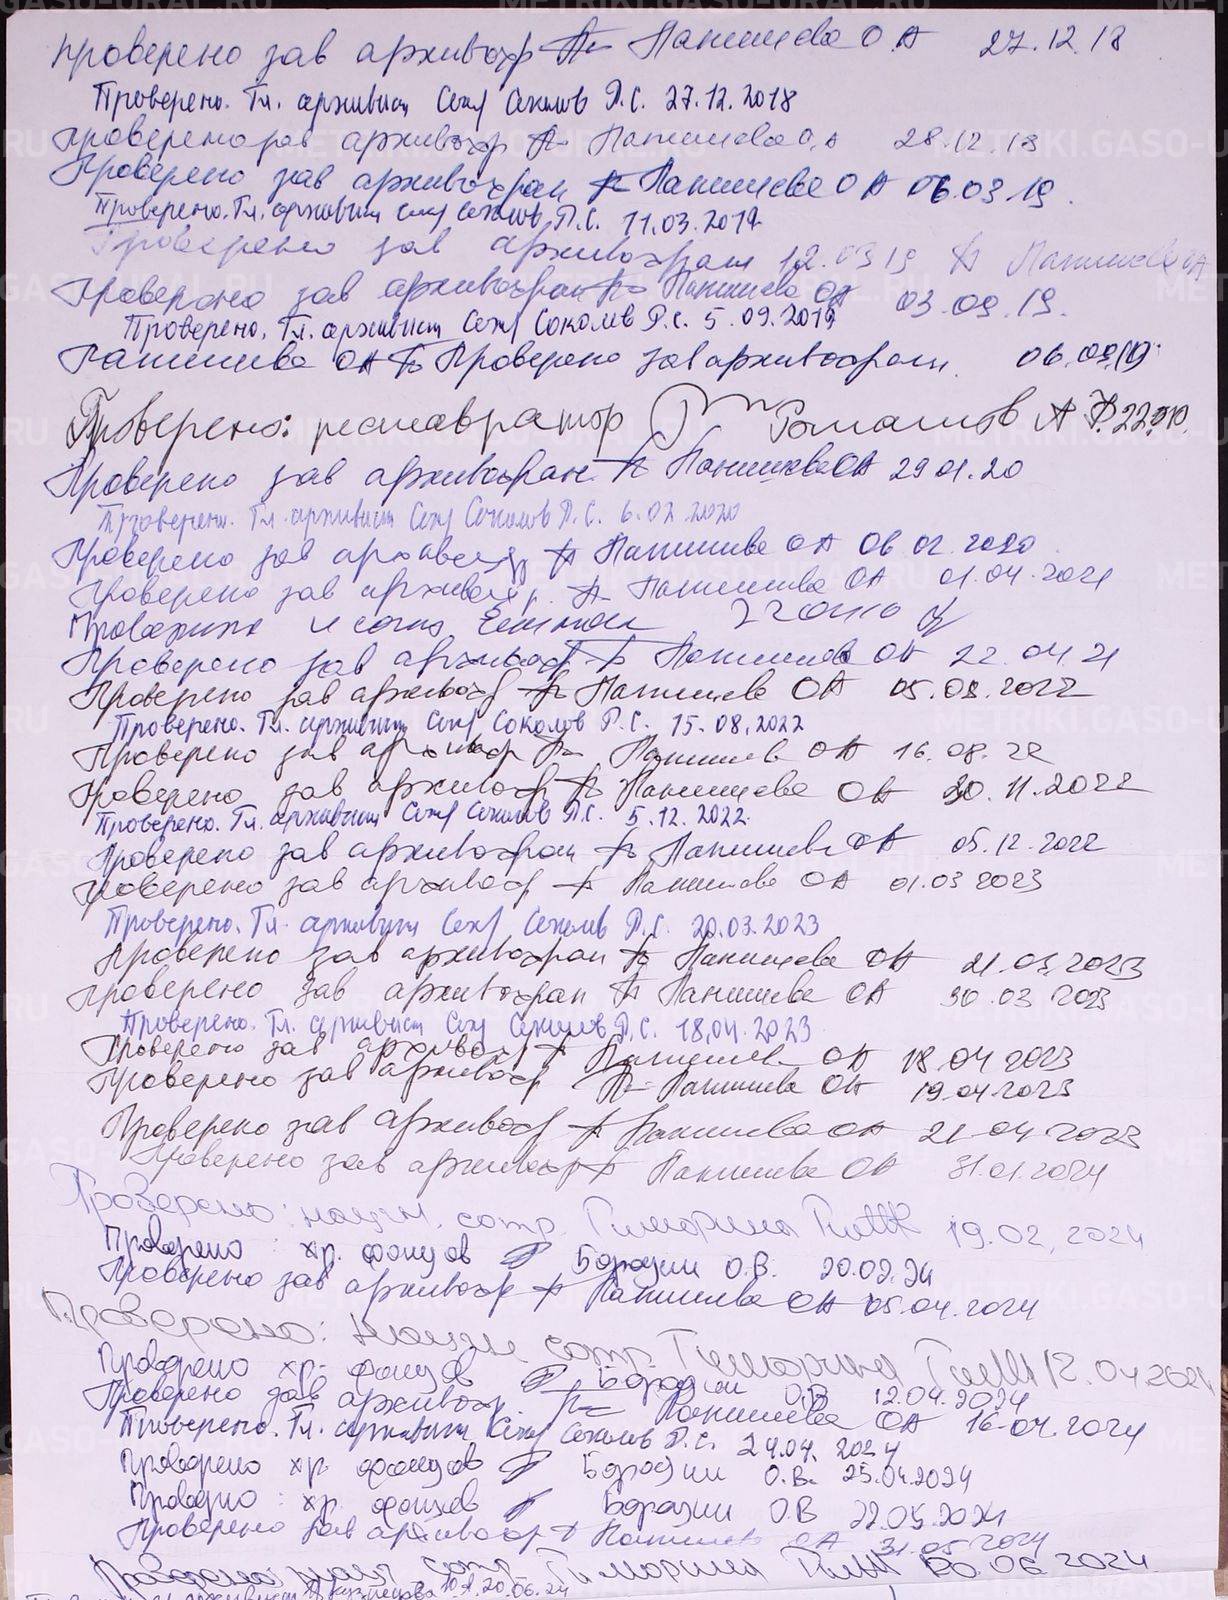 Проверено зав архивохр Паншиева О А 27.12.18
Проверено. Гл. архивист Соколов Р.С. 27.12.2018
Проверено зав архивохр Паншиева О.А 28.12.18
Проверено зав архивохран Паншиева О А 06.03.19.
Проверено. Гл. архивист Соколов Р.С. 11.03.2019
Проверено зав архивохран 12.03 19 Паншиева ОА
Проверено зав архивохран Паншиева ОА 03.09.19.
Проверено. Гл. архивист Соколов Р.С. 5.09.2019
Паншиева ОА Проверено зав архивохран. 06.09.19
Проверено: реставратор Ромашов А
Проверено зав архивохран Паншиева ОА 29 01.20
Проверено. Гл. архивист Соколов Р.С. 6.02.2020
Проверено зав Паншиева ОА 06 02.2020
Проверено зав архивохр. Паншиева ОА 01.04.2021
Проверено зав архивохр Паншиева ОА 22.04.21
Проверено зав архивохр Паншиева ОА 05.08.2022
Проверено. Гл. архивист Соколов Р.С. 15.08.2022
Проверено зав архивохр Паншиева ОА 16.08.22
Проверено зав архивохр Паншиева ОА 30.11.2022
Проверено. Гл. архивист Соколов Р.С. 5.12.2022.
Проверено зав архивохран Паншиева ОА 05.12.2022
Проверено зав архивохр Паншиева ОА 01.03 2023
Проверено. Гл. архивист Соколов Р.С. 20.03.2023
Проверено зав архивохран Паншиева ОА 21.03.2023
Проверено зав архивохран Паншиева ОА 30.03 2023
Проверено. Гл. архивист Соколов Р.С. 18.04.2023
Проверено зав архивохр Паншиева ОА 18.04 2023
Проверено зав архивохр Паншиева ОА 19.04.2023
Проверено зав архивохр Паншиева ОА 21.04.2023
Проверено зав архивохр Паншиева ОА 31.01.2024
Проверено: научн. сотр. Тиморина 19.02.2024
Проверено: хр. фондов Бородин О.В. 20.02.24
Проверено зав архивохр Паншиева ОА 05.04.2024
Проверено: научн сотр. Тиморина 12.04.2024
Проверено хр. фондов Бородин О.В 12.04.2024
Проверено зав архивохр. Паншиева ОА 16.04.2024
Проверено. Гл. архивист Соколов Р.С. 24.04.2024
Проверено хр. фондов Бородин О.В. 25.04.2024
Проверено: хр. фондов Бородин О.В 22.05.2024
Проверено зав архивохр Паншиева ОА 31.05.2024
Проверено научн сотр Тиморина 20.06.2024
архивист Кузнецова 20.06.24